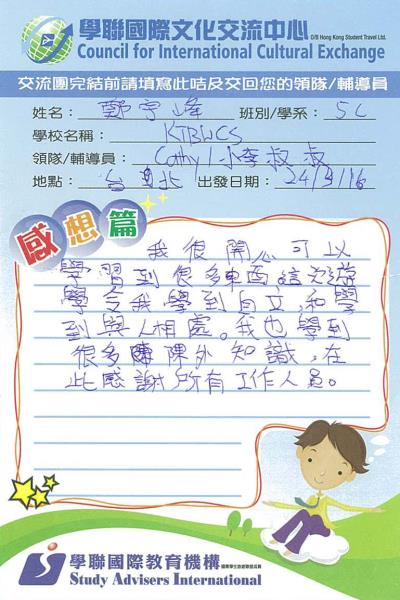 學聯國際文化交流中心
O/B Hong Kong Student Travel Ltd.
Council for International Cultural Exchange
交流團完結前請填寫此咭及交回您的領隊/輔導員
姓名: 鄭宇峰 班別/學系: 5C
學校名稱: KTBWCS
領隊/輔導員: Cathy / 小李叔叔
地點: 台北 出發日期: 24/3/16
感想篇
我很開心可以
學習到很多東西,這次遊
學令我學到自立,和學
到與人相處。我也學到
很多課外知識,在
此感謝所有工作人員。
學聯國際教育機構
Study Advisers International